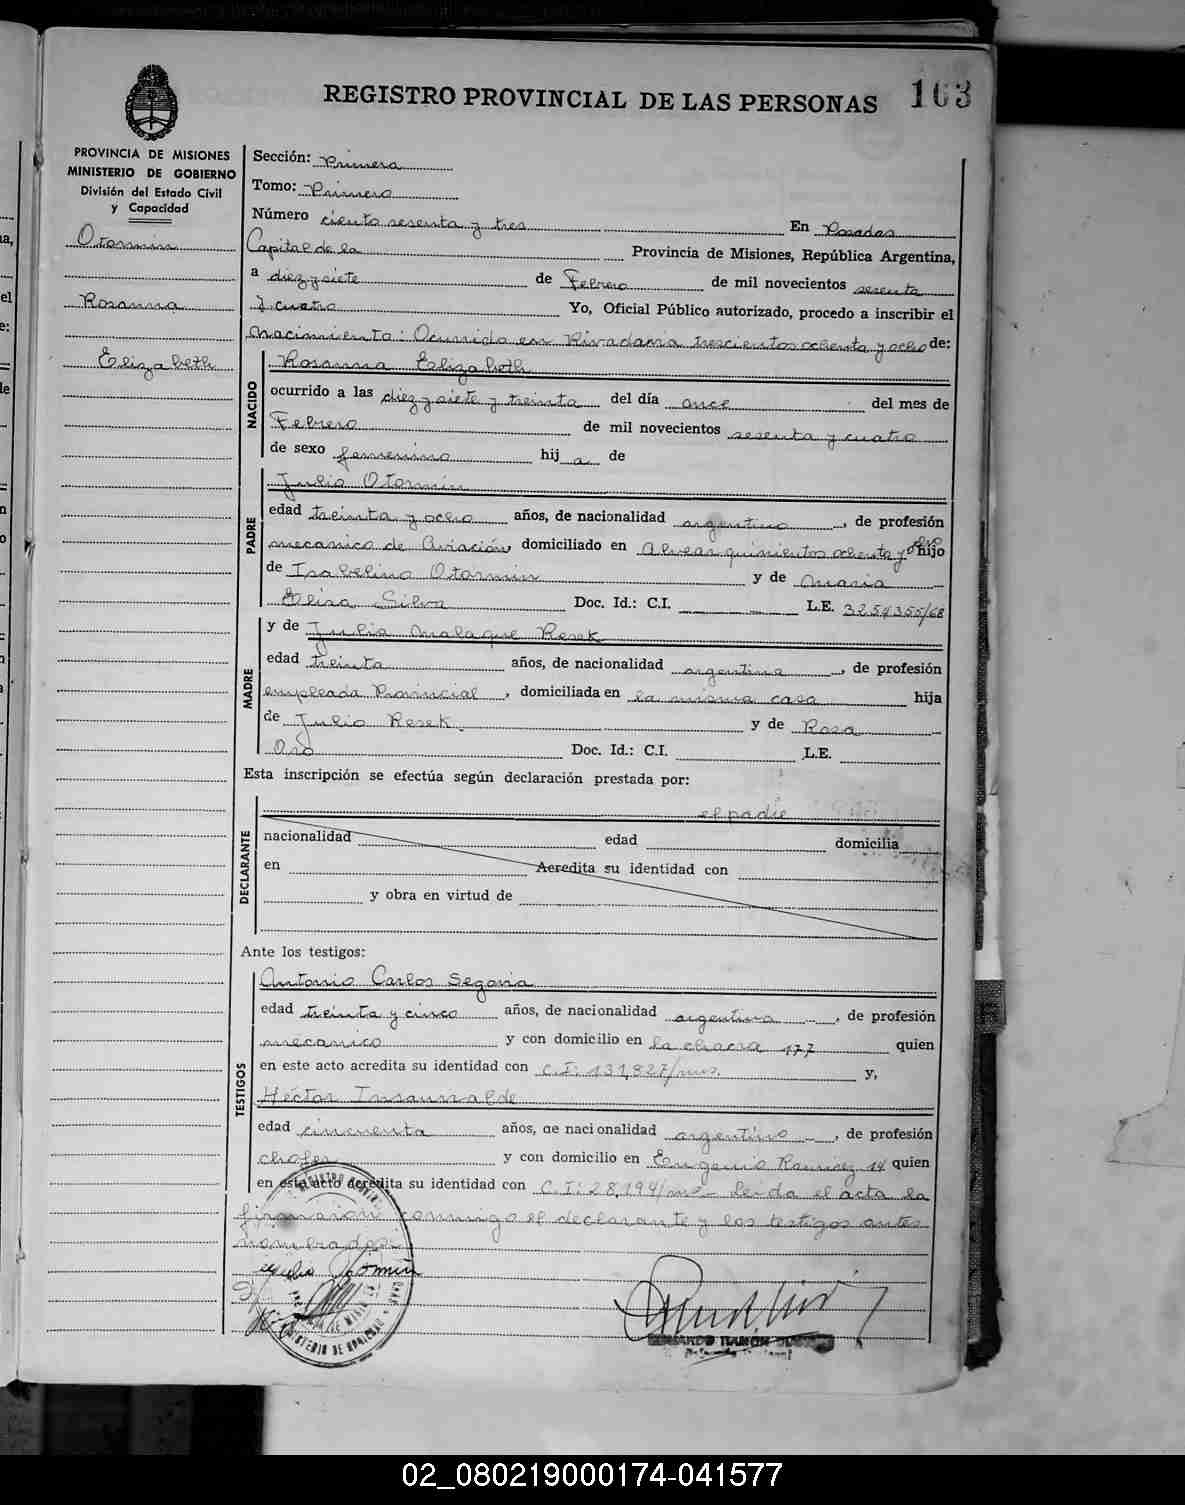 REGISTRO PROVINCIAL DE LAS PERSONAS 163
PROVINCIA DE MISIONES
MINISTERIO DE GOBIERNO
División del Estado Civil
y Capacidad
Otormin
Rosanna
Elizabeth
Sección: Primera
Tomo: Primero
Número ciento sesenta y tres En Posadas
Capital de la Provincia de Misiones, República Argentina,
a diez y siete de Febrero de mil novecientos sesenta
y cuatro Yo, Oficial Público autorizado, procedo a inscribir el
Nacimiento: Ocurrido en Rivadavia trescientos ochenta y ocho de:
NACIDO
Rosanna Elizabeth
ocurrido a las diez y siete y treinta del día once del mes de
Febrero de mil novecientos sesenta y cuatro
de sexo femenino hij a de
PADRE
Julio Otormin
edad treinta y ocho años, de nacionalidad argentino, de profesión
mecanico de Aviación, domiciliado en Alvear quinientos ochenta y ocho hijo
de Isabelino Otormin y de Maria
Elisa Silva Doc. Id.: C.I. L.E. 3254355/68
MADRE
y de Julia Malaque Resek
edad treinta años, de nacionalidad argentina, de profesión
empleada Provincial, domiciliada en la misma casa hija
de Julio Resek. y de Rosa
Oro Doc. Id.: C.I. L.E.
Esta inscripción se efectúa según declaración prestada por:
DECLARANTE
el padre
nacionalidad edad domicilia
en Acredita su identidad con
y obra en virtud de
Ante los testigos:
TESTIGOS
Antonio Carlos Segovia
edad treinta y cinco años, de nacionalidad argentino, de profesión
mecanico y con domicilio en la chacra 177 quien
en este acto acredita su identidad con C.I: 131,827/mns. y,
Héctor Insaurralde
edad cincuenta años, de nacionalidad argentino, de profesión
chofer y con domicilio en Eugenio Ramirez 14 quien
en este acto acredita su identidad con C.I: 28,194/ms - Leida el acta la
firmaron conmigo el declarante y los testigos antes
nombrados:
Julio Otormin
02_080219000174-041577